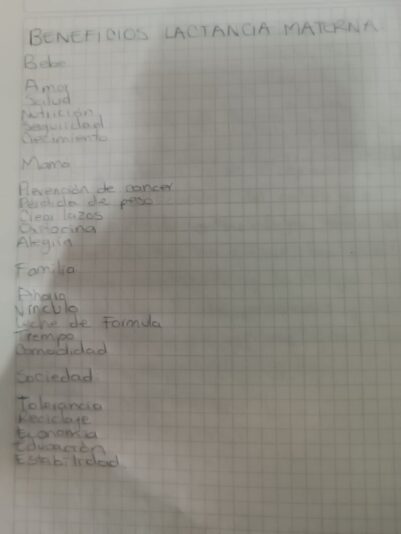 BENEFICIOS LACTANCIA MATERNA
Bebe
Amor
Salud
Nutrición
Seguridad
Crecimiento
Mama
Prevención de cancer
Perdida de peso
Crear lazos
Oxitocina
Alegria
Familia
Ahorro
Vinculo
Leche de Formula
Tiempo
Comodidad
Sociedad
Tolerancia
Reciclaje
Economia
Educación
Estabilidad